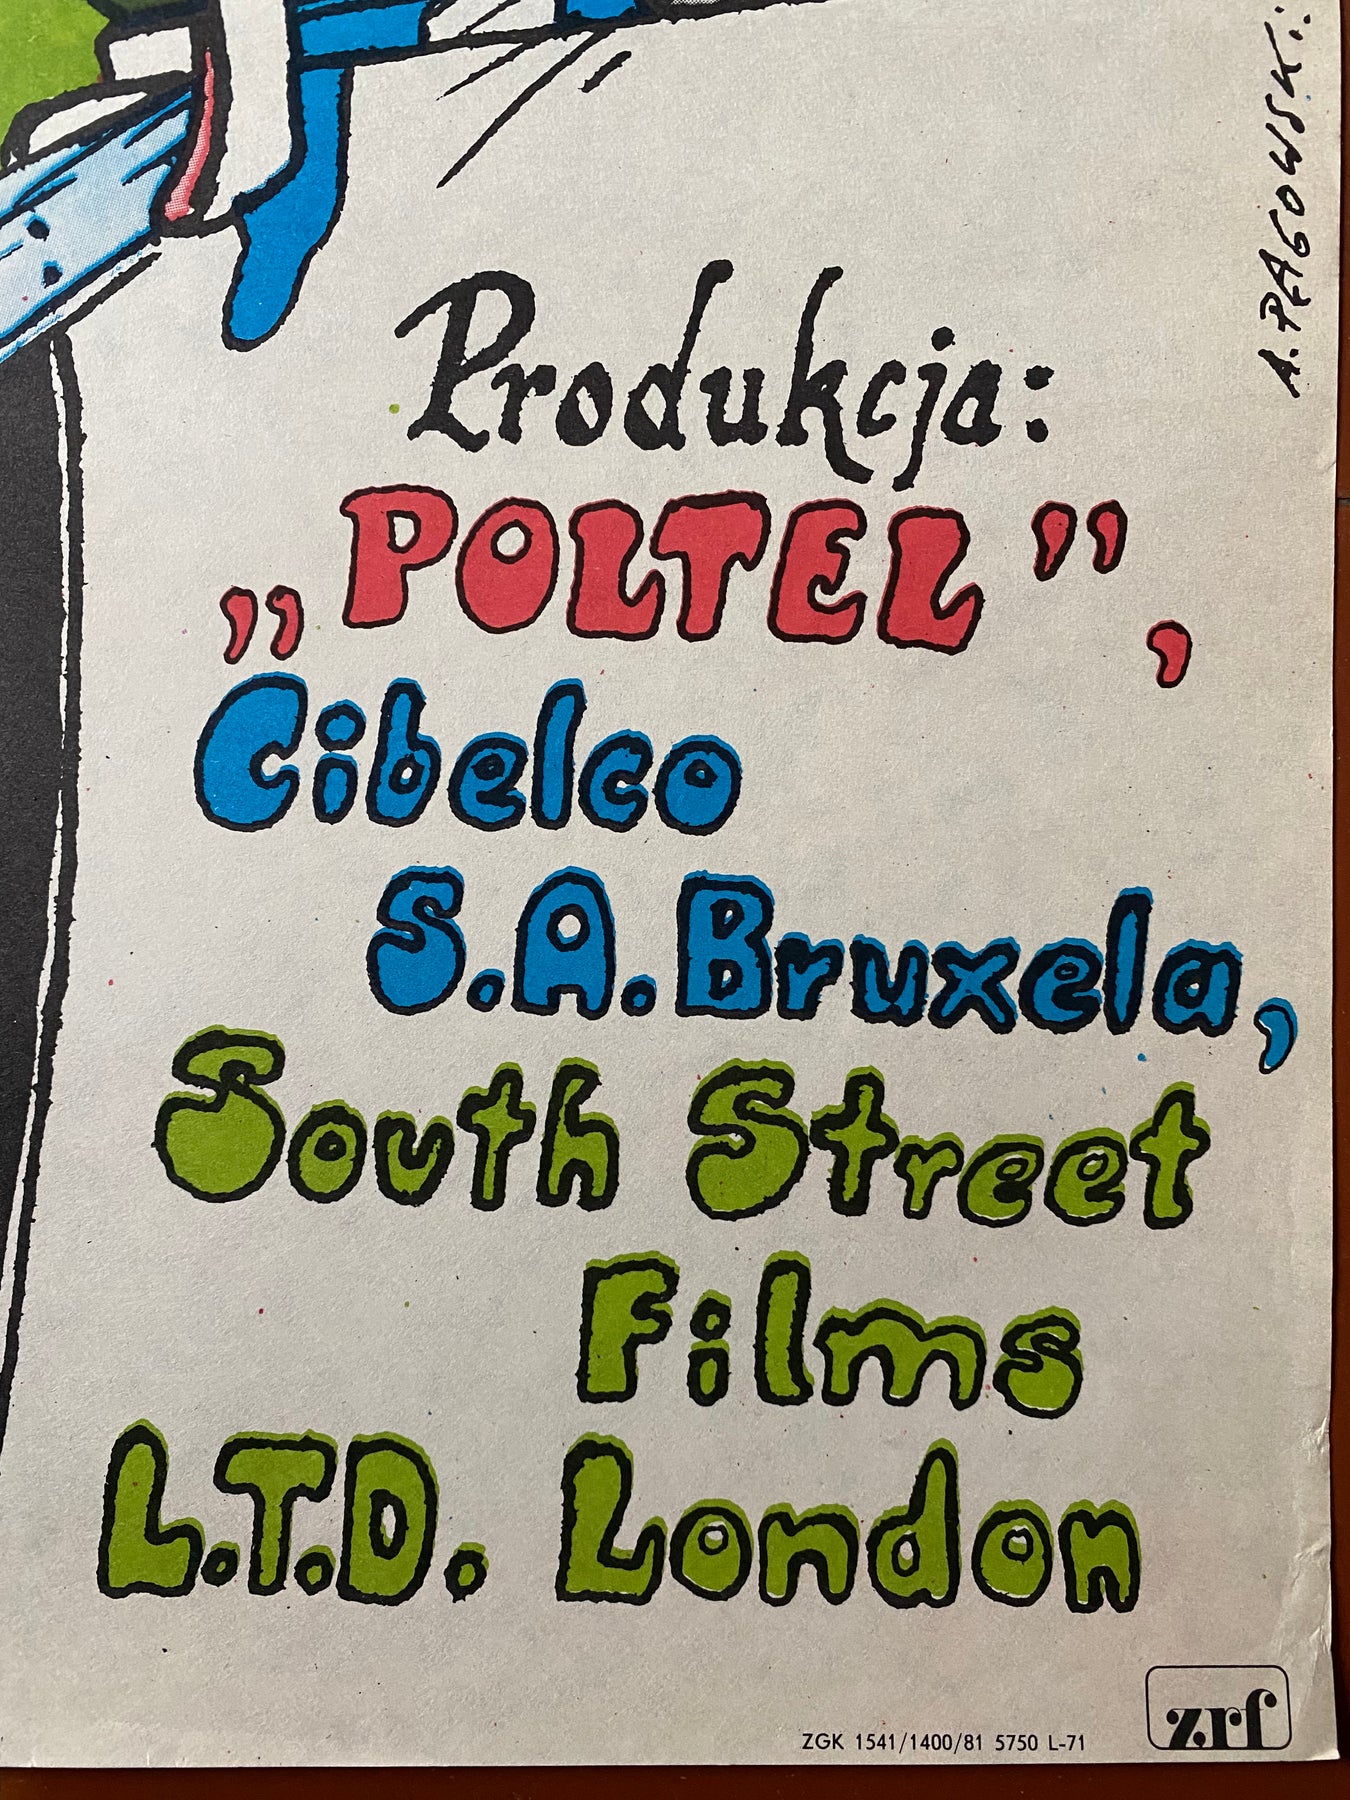 A. PĄGOWSKI:
Produkcja:
„POLTEL”,
Cibelco
S.A. Bruxela,
South Street
Films
L.T.D. London
ZGK 1541/1400/81 5750 L-71
zrf